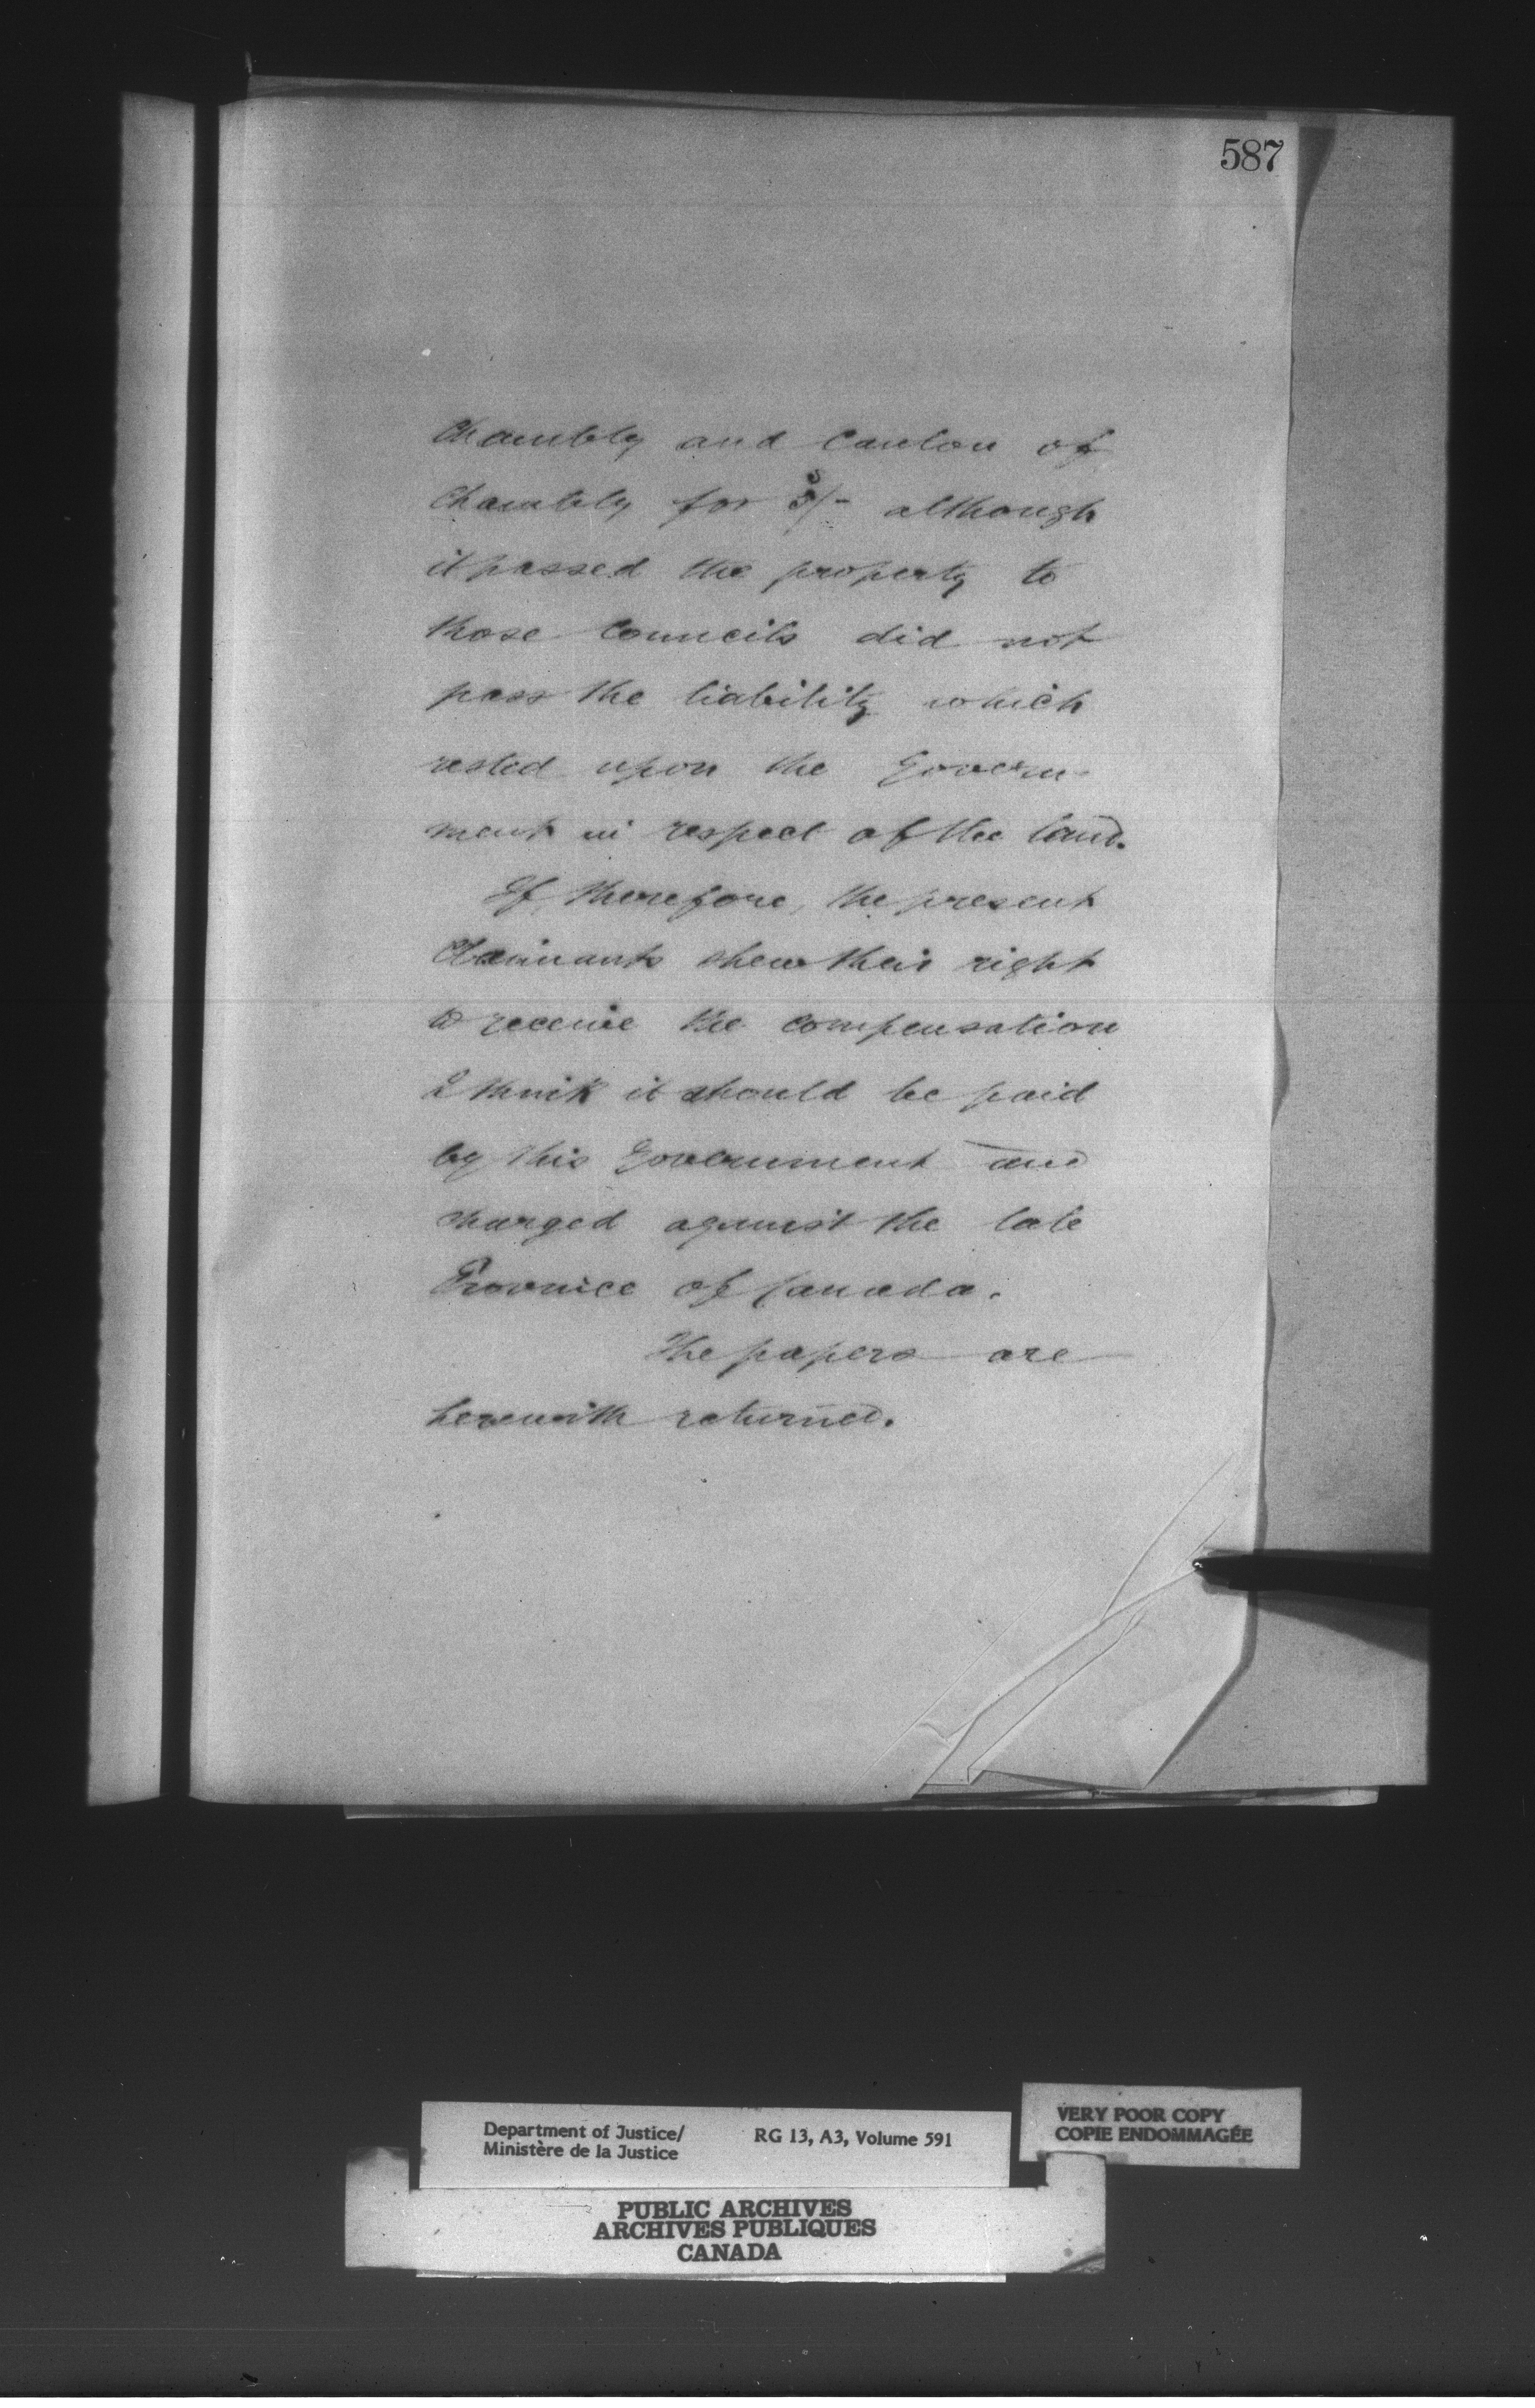 587
Chambly and Canton of
Chambly for 5/- although
it passed the property to
those Councils did not
pass the liability which
rested upon the Govern-
ment in respect of the land.
If, therefore, the present
Claimants shew their right
to receive the compensation
I think it should be paid
by this Government and
charged against the late
Province of Canada.
The papers are
herewith returned.
Department of Justice/
Ministère de la Justice
RG 13, A3, Volume 591
VERY POOR COPY
COPIE ENDOMMAGÉE
PUBLIC ARCHIVES
ARCHIVES PUBLIQUES
CANADA